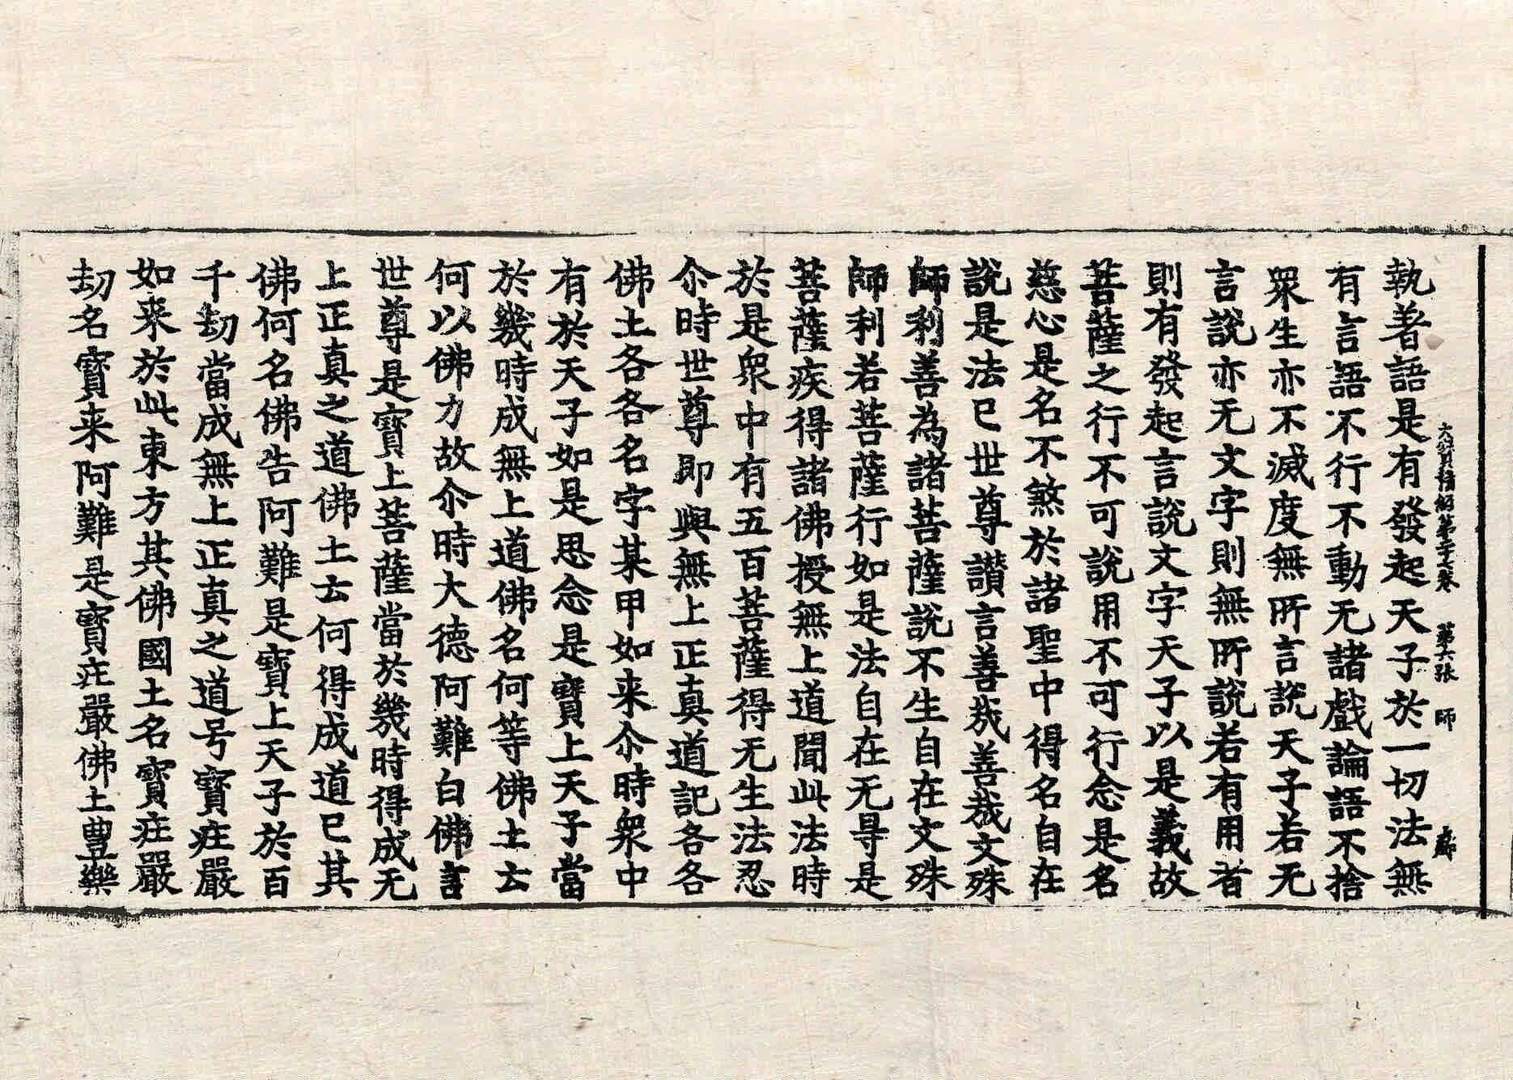 大寶積經第二十七卷 第六張 師
執著語是有發起天子於一切法無
有言語不行不動无諸戲論語不捨
衆生亦不滅度無所言説天子若无
言說亦无文字則無所說若有用者
則有發起言說文字天子以是義故
菩薩之行不可說用不可行念是名
慈心是名不煞於諸聖中得名自在
說是法已世尊讃言善哉善哉文殊
師利善為諸菩薩說不生自在文殊
師利若菩薩行如是法自在无㝵是
菩薩疾得諸佛授無上道聞此法時
於是衆中有五百菩薩得无生法忍
尒時世尊即與無上正真道記各各
佛土各各名字某甲如来尒時衆中
有於天子如是思念是寶上天子當
於幾時成無上道佛名何等佛土云
何以佛力故尒時大德阿難白佛言
世尊是寶上菩薩當於幾時得成无
上正真之道佛土云何得成道已其
佛何名佛告阿難是寶上天子於百
千劫當成無上正真之道号寶㽵嚴
如来於此東方其佛國土名寶㽵嚴
劫名寶来阿難是寶㽵嚴佛土豊樂